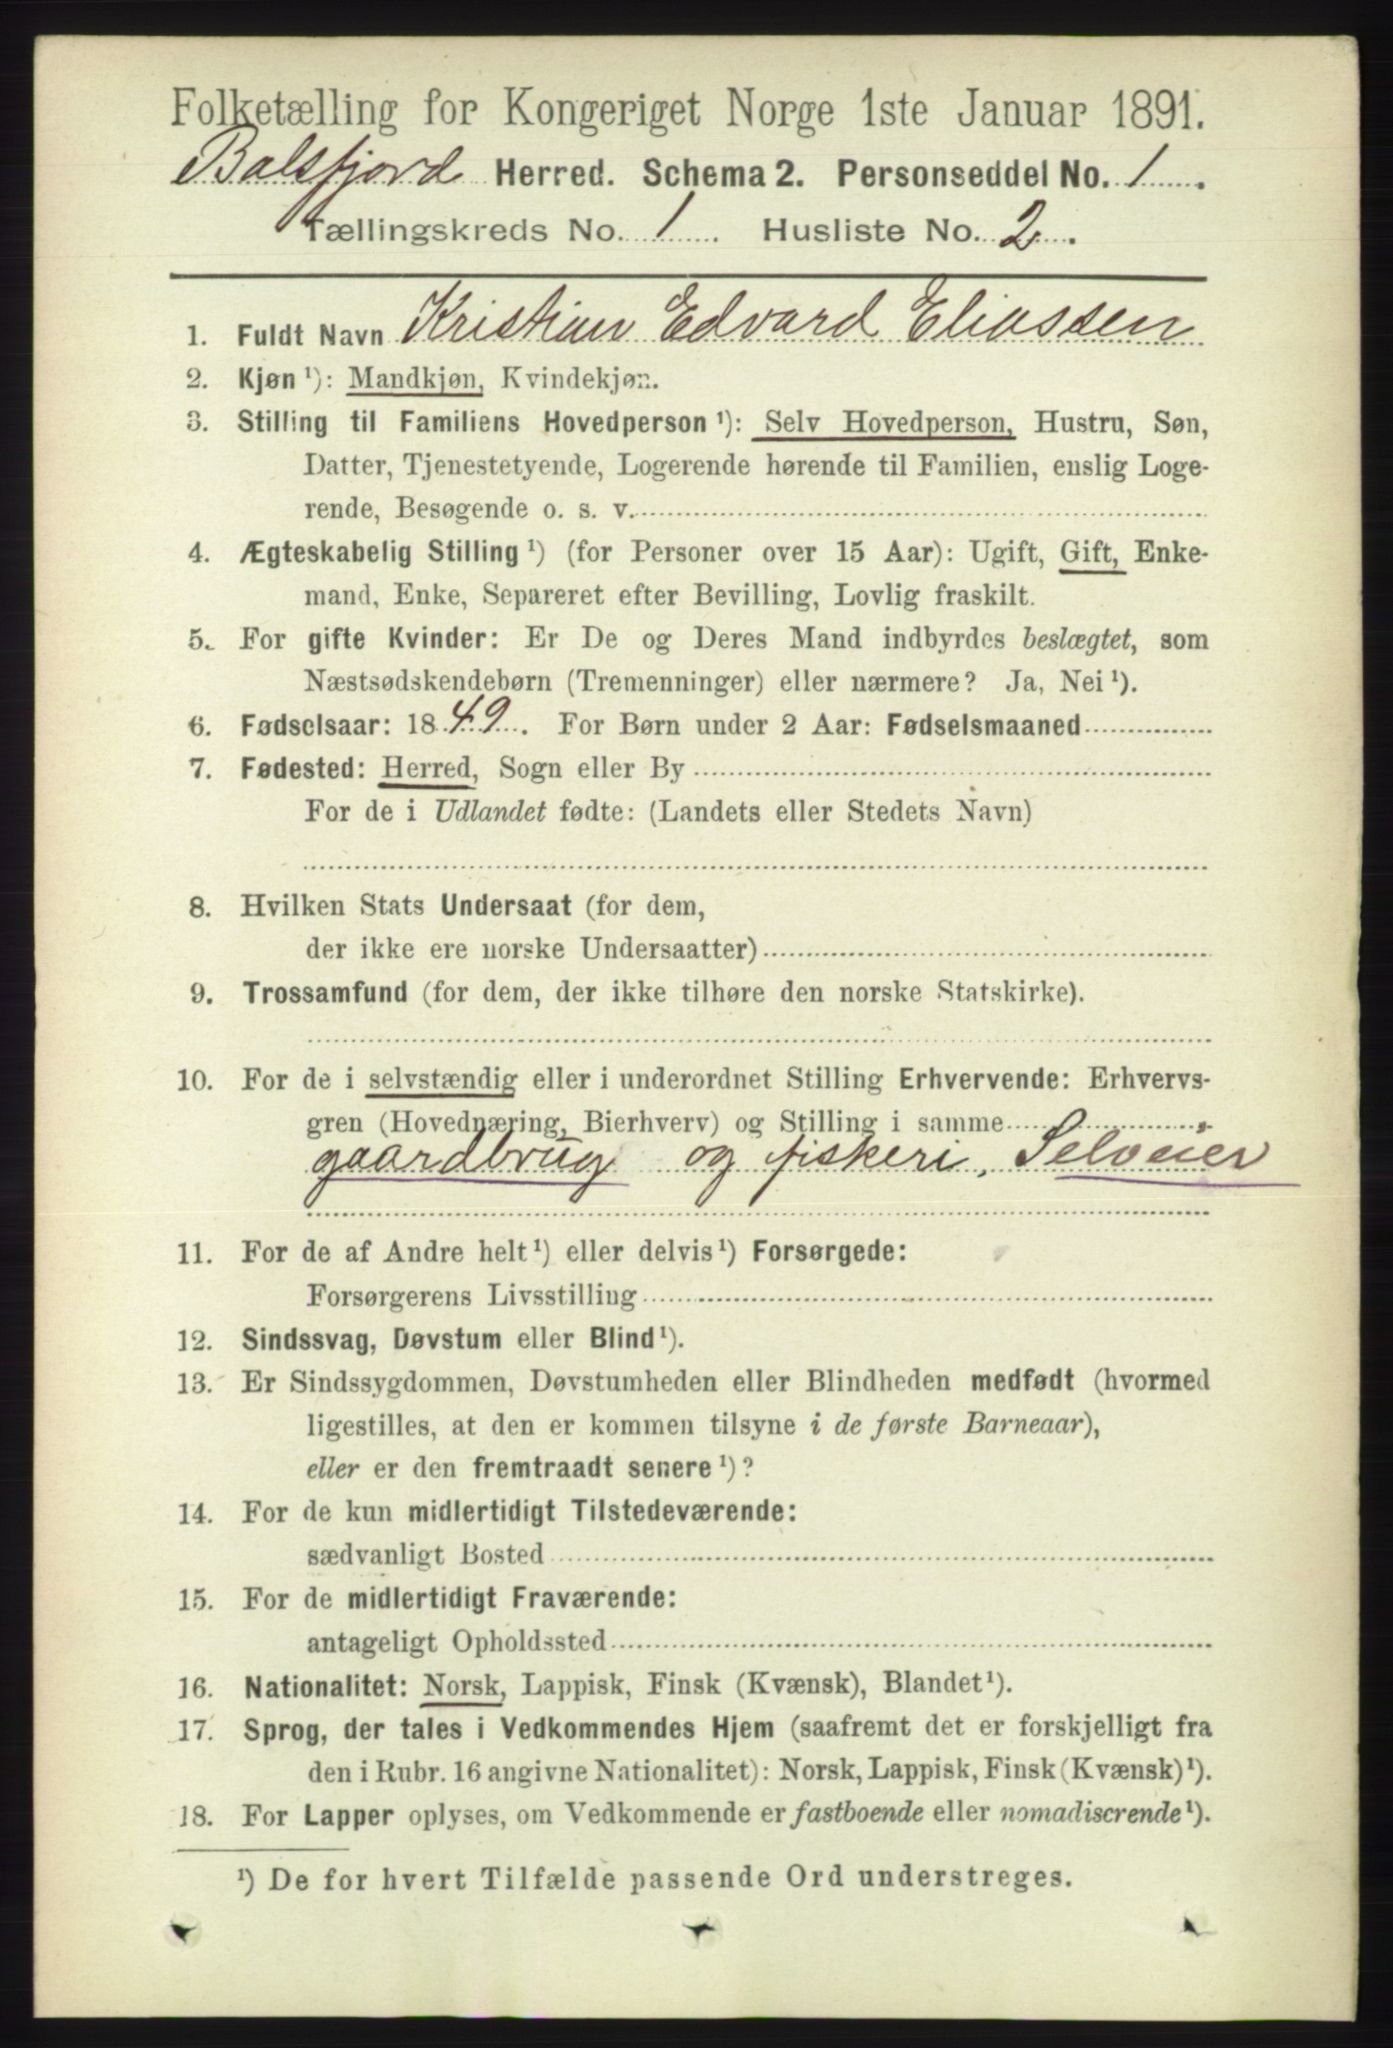 Folketælling for Kongeriget Norge 1ste Januar 1891.
Balsfjord Herred. Schema 2. Personseddel No. 1.
Tællingskreds No. 1. Husliste No. 2.
1. Fuldt Navn Kristian Edvard Eliassen
2. Kjøn ¹): Mandkjøn, Kvindekjøn.
3. Stilling til Familiens Hovedperson ¹): Selv Hovedperson, Hustru, Søn,
Datter, Tjenestetyende, Logerende hørende til Familien, enslig Loge-
rende, Besøgende o. s. v.
4. Ægteskabelig Stilling ¹) (for Personer over 15 Aar): Ugift, Gift, Enke-
mand, Enke, Separeret efter Bevilling, Lovlig fraskilt.
5. For gifte Kvinder: Er De og Deres Mand indbyrdes beslægtet, som
Næstsødskendebørn (Tremenninger) eller nærmere? Ja, Nei ¹).
6. Fødselsaar: 1849. For Børn under 2 Aar: Fødselsmaaned
7. Fødested: Herred, Sogn eller By
For de i Udlandet fødte: (Landets eller Stedets Navn)
8. Hvilken Stats Undersaat (for dem,
der ikke ere norske Undersaatter)
9. Trossamfund (for dem, der ikke tilhøre den norske Statskirke).
10. For de i selvstændig eller i underordnet Stilling Erhvervende: Erhvervs-
gren (Hovednæring, Bierhverv) og Stilling i samme
gaardbrug og fiskeri, Selveier
11. For de af Andre helt ¹) eller delvis ¹) Forsørgede:
Forsørgerens Livsstilling
12. Sindssvag, Døvstum eller Blind ¹).
13. Er Sindssygdommen, Døvstumheden eller Blindheden medfødt (hvormed
ligestilles, at den er kommen tilsyne i de første Barneaar),
eller er den fremtraadt senere ¹)?
14. For de kun midlertidigt Tilstedeværende:
sædvanligt Bosted
15. For de midlertidigt Fraværende:
antageligt Opholdssted
16. Nationalitet: Norsk, Lappisk, Finsk (Kvænsk), Blandet ¹).
17. Sprog, der tales i Vedkommendes Hjem (saafremt det er forskjelligt fra
den i Rubr. 16 angivne Nationalitet): Norsk, Lappisk, Finsk (Kvænsk) ¹).
18. For Lapper oplyses, om Vedkommende er fastboende eller nomadiserende ¹).
¹) De for hvert Tilfælde passende Ord understreges.